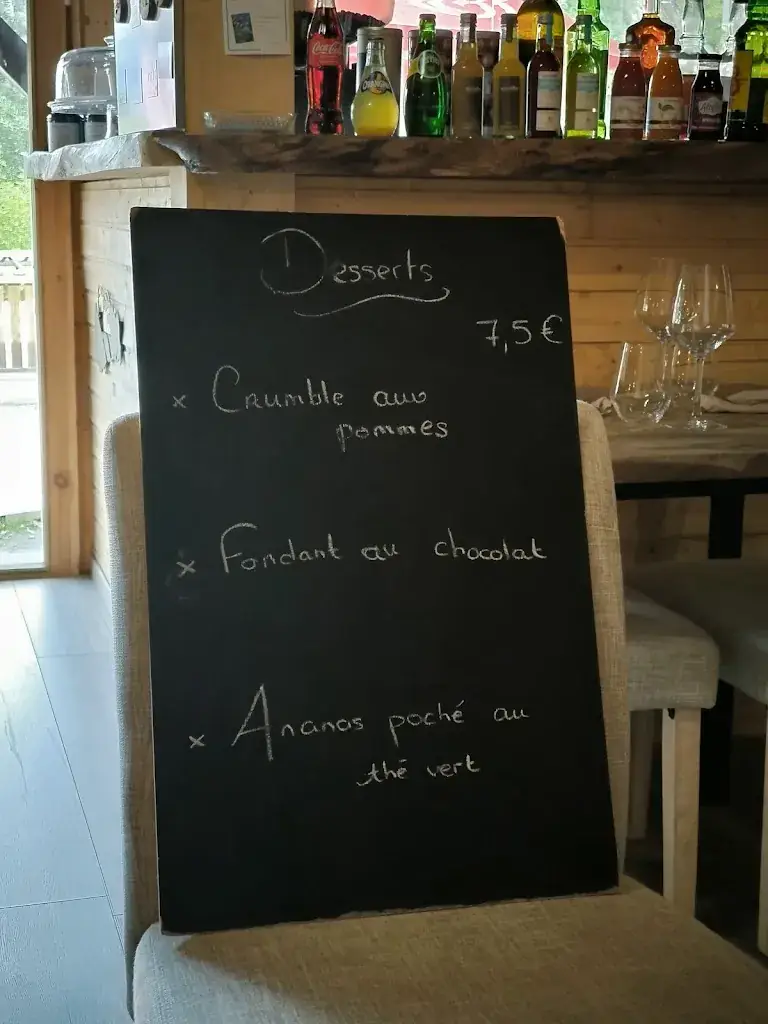 Coca-Cola
Desserts
7,5€
x Crumble aux
pommes
x Fondant au chocolat
x Ananas poché au
thé vert